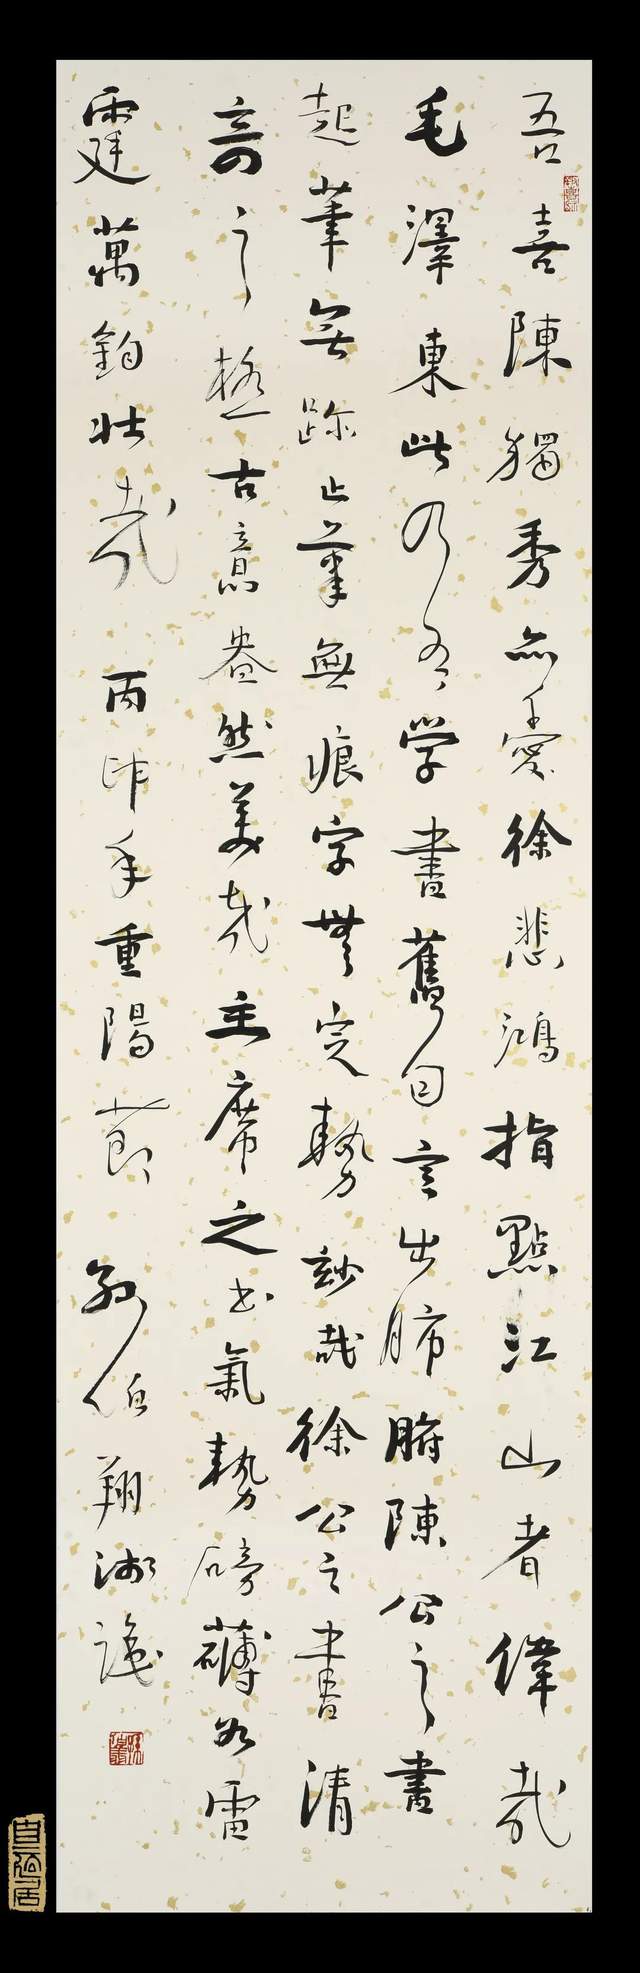 吾喜陳獨秀亦愛徐悲鴻指點江山者偉哉
毛澤東此乃吾學書舊句言出肺腑陳公之書
起筆無跡止筆無痕字無定勢妙哉徐公之書清
奇之極古意盎然美哉主席之書氣勢磅礴如雷
霆萬鈞壯哉 丙申年重陽節 孫伯翔漫識